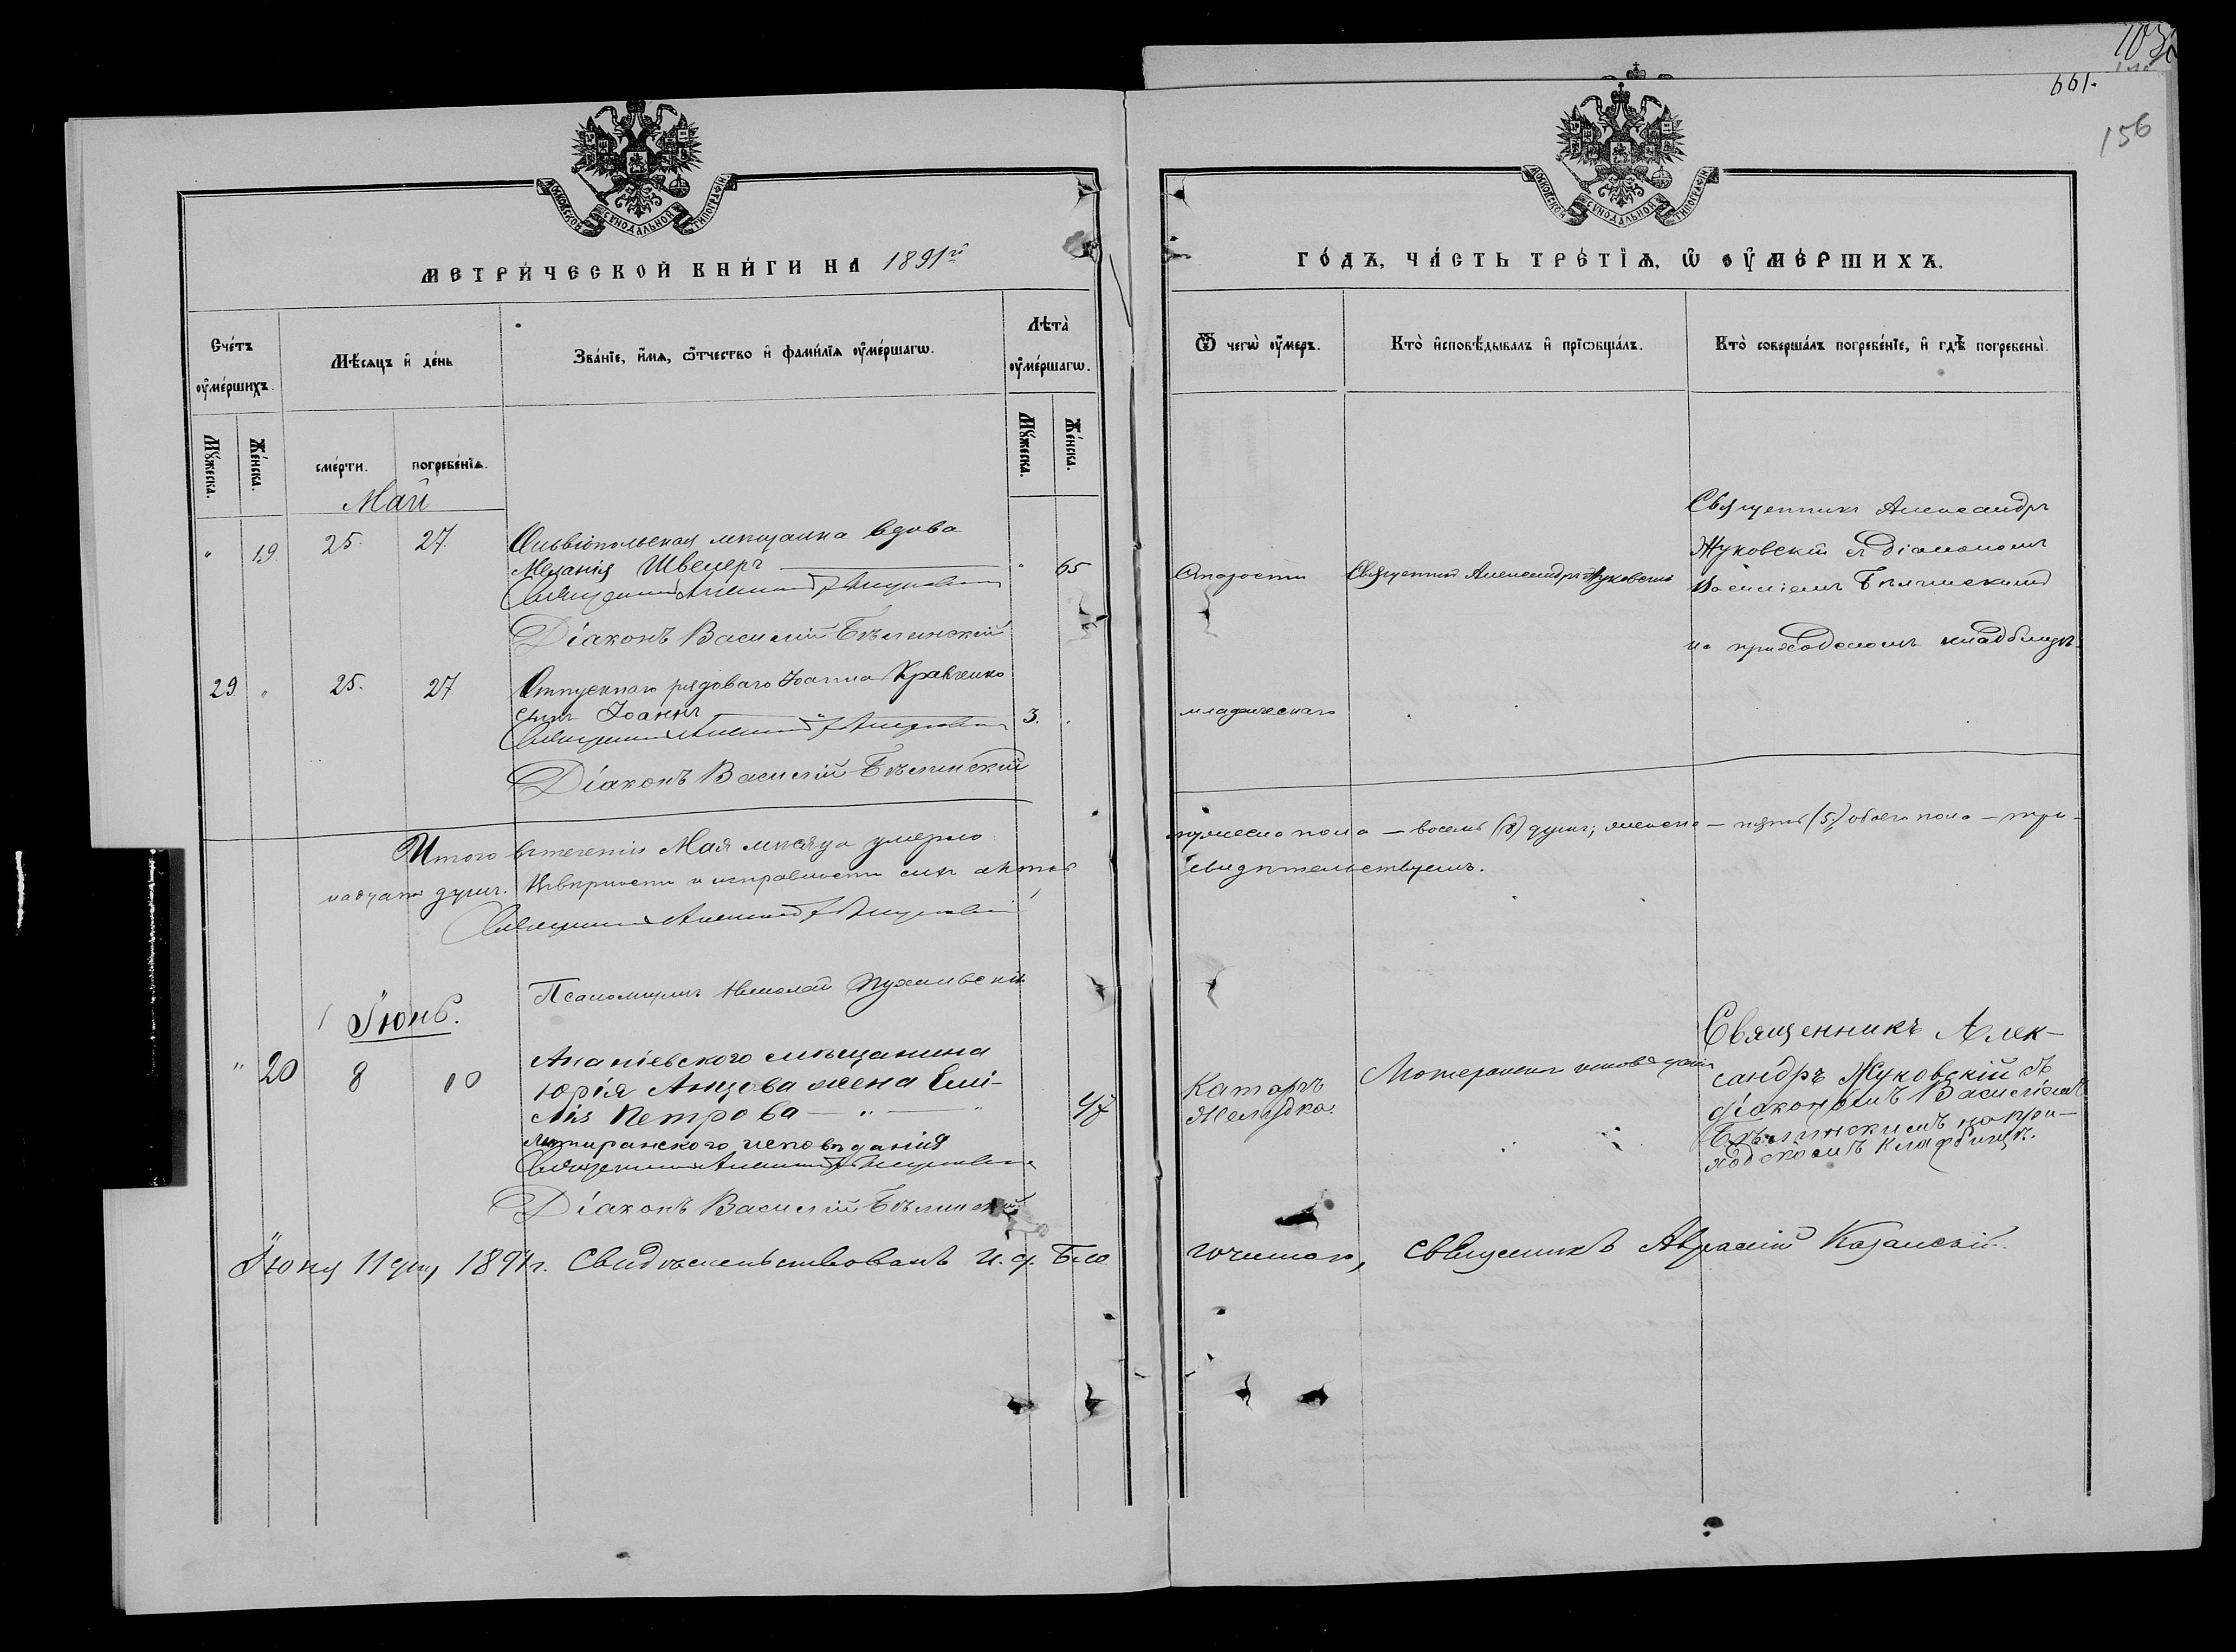 661.
156
МОСКОВСКОЙ СѴНОДАЛЬНОЙ ТИПОГРАФІИ
МОСКОВСКОЙ СѴНОДАЛЬНОЙ ТИПОГРАФІИ
МЕТРИ́ЧЕСКОЙ КНИ́ГИ НА 1891й
ГО́ДЪ, ЧА́СТЬ ТРЕ́ТІѦ, Ѡ ОУ҆МЕ́РШИХЪ.
Сче́тъ оу҆ме́ршихъ.
Мѣ́сѧцъ и҆ де́нь
Зва́нїе, и҆́мѧ, ѻ҆́тчество и҆ фами́лїѧ оу҆ме́ршагѡ.
Лѣта̀ оу҆ме́ршагѡ.
Ѿ чегѡ̀ оу҆́меръ.
Кто̀ и҆сповѣ́дывалъ и҆ прїѡбща́лъ.
Кто̀ соверша́лъ погребе́нїе, и҆ гдѣ̀ погребены̀.
Мꙋ́жеска.
Же́нска.
сме́рти.
погребе́нїѧ.
Мꙋ́жеска.
Же́нска.
Май
" 19. 25. 27. Ольвіопольская мѣщанка вдова
Меланія Швецеръ " 65
Священникъ Александръ Жуковскій
Діаконъ Василій Бѣлинскій
Старости
Священникъ Александръ Жуковскій
Священникъ Александръ
Жуковскій съ діакономъ
Василіемъ Бѣлинскимъ
на приходскомъ кладбищѣ.
29 " 25. 27 Отпускнаго рядоваго Іоанна Кравченко
сынъ Іоаннъ 3.
Священникъ Александръ Жуковскій
Діаконъ Василій Бѣлинскій
младенческаго
Итого втеченіи Мая мѣсяца умерло мужеска пола — восемь (8) душъ; женска — пять (5) обоего пола — три-
надцать душъ. Въ вѣрности и исправности сихъ актовъ свидѣтельствуемъ.
Священникъ Александръ Жуковскій
Псаломщикъ Николай
Іюнь.
" 20 8 10 Ананіевского мѣщанина
Юрія Анцова жена Емі-
лія Петрова — " — " 47
лютиранского исповѣданія
Священникъ Александръ Жуковскій
Діаконъ Василій Бѣлинскій
Катаръ
Желудка.
Лютеранск. исповѣданія
Священникъ Алек-
сандръ Жуковскій съ
діакономъ Василіемъ
Бѣлинскимъ на при-
ходскомъ кладбищѣ.
Іюня 11 дня 1891 г. Свидѣтельствовалъ и. д. Благочиннаго, священникъ Казанскій.